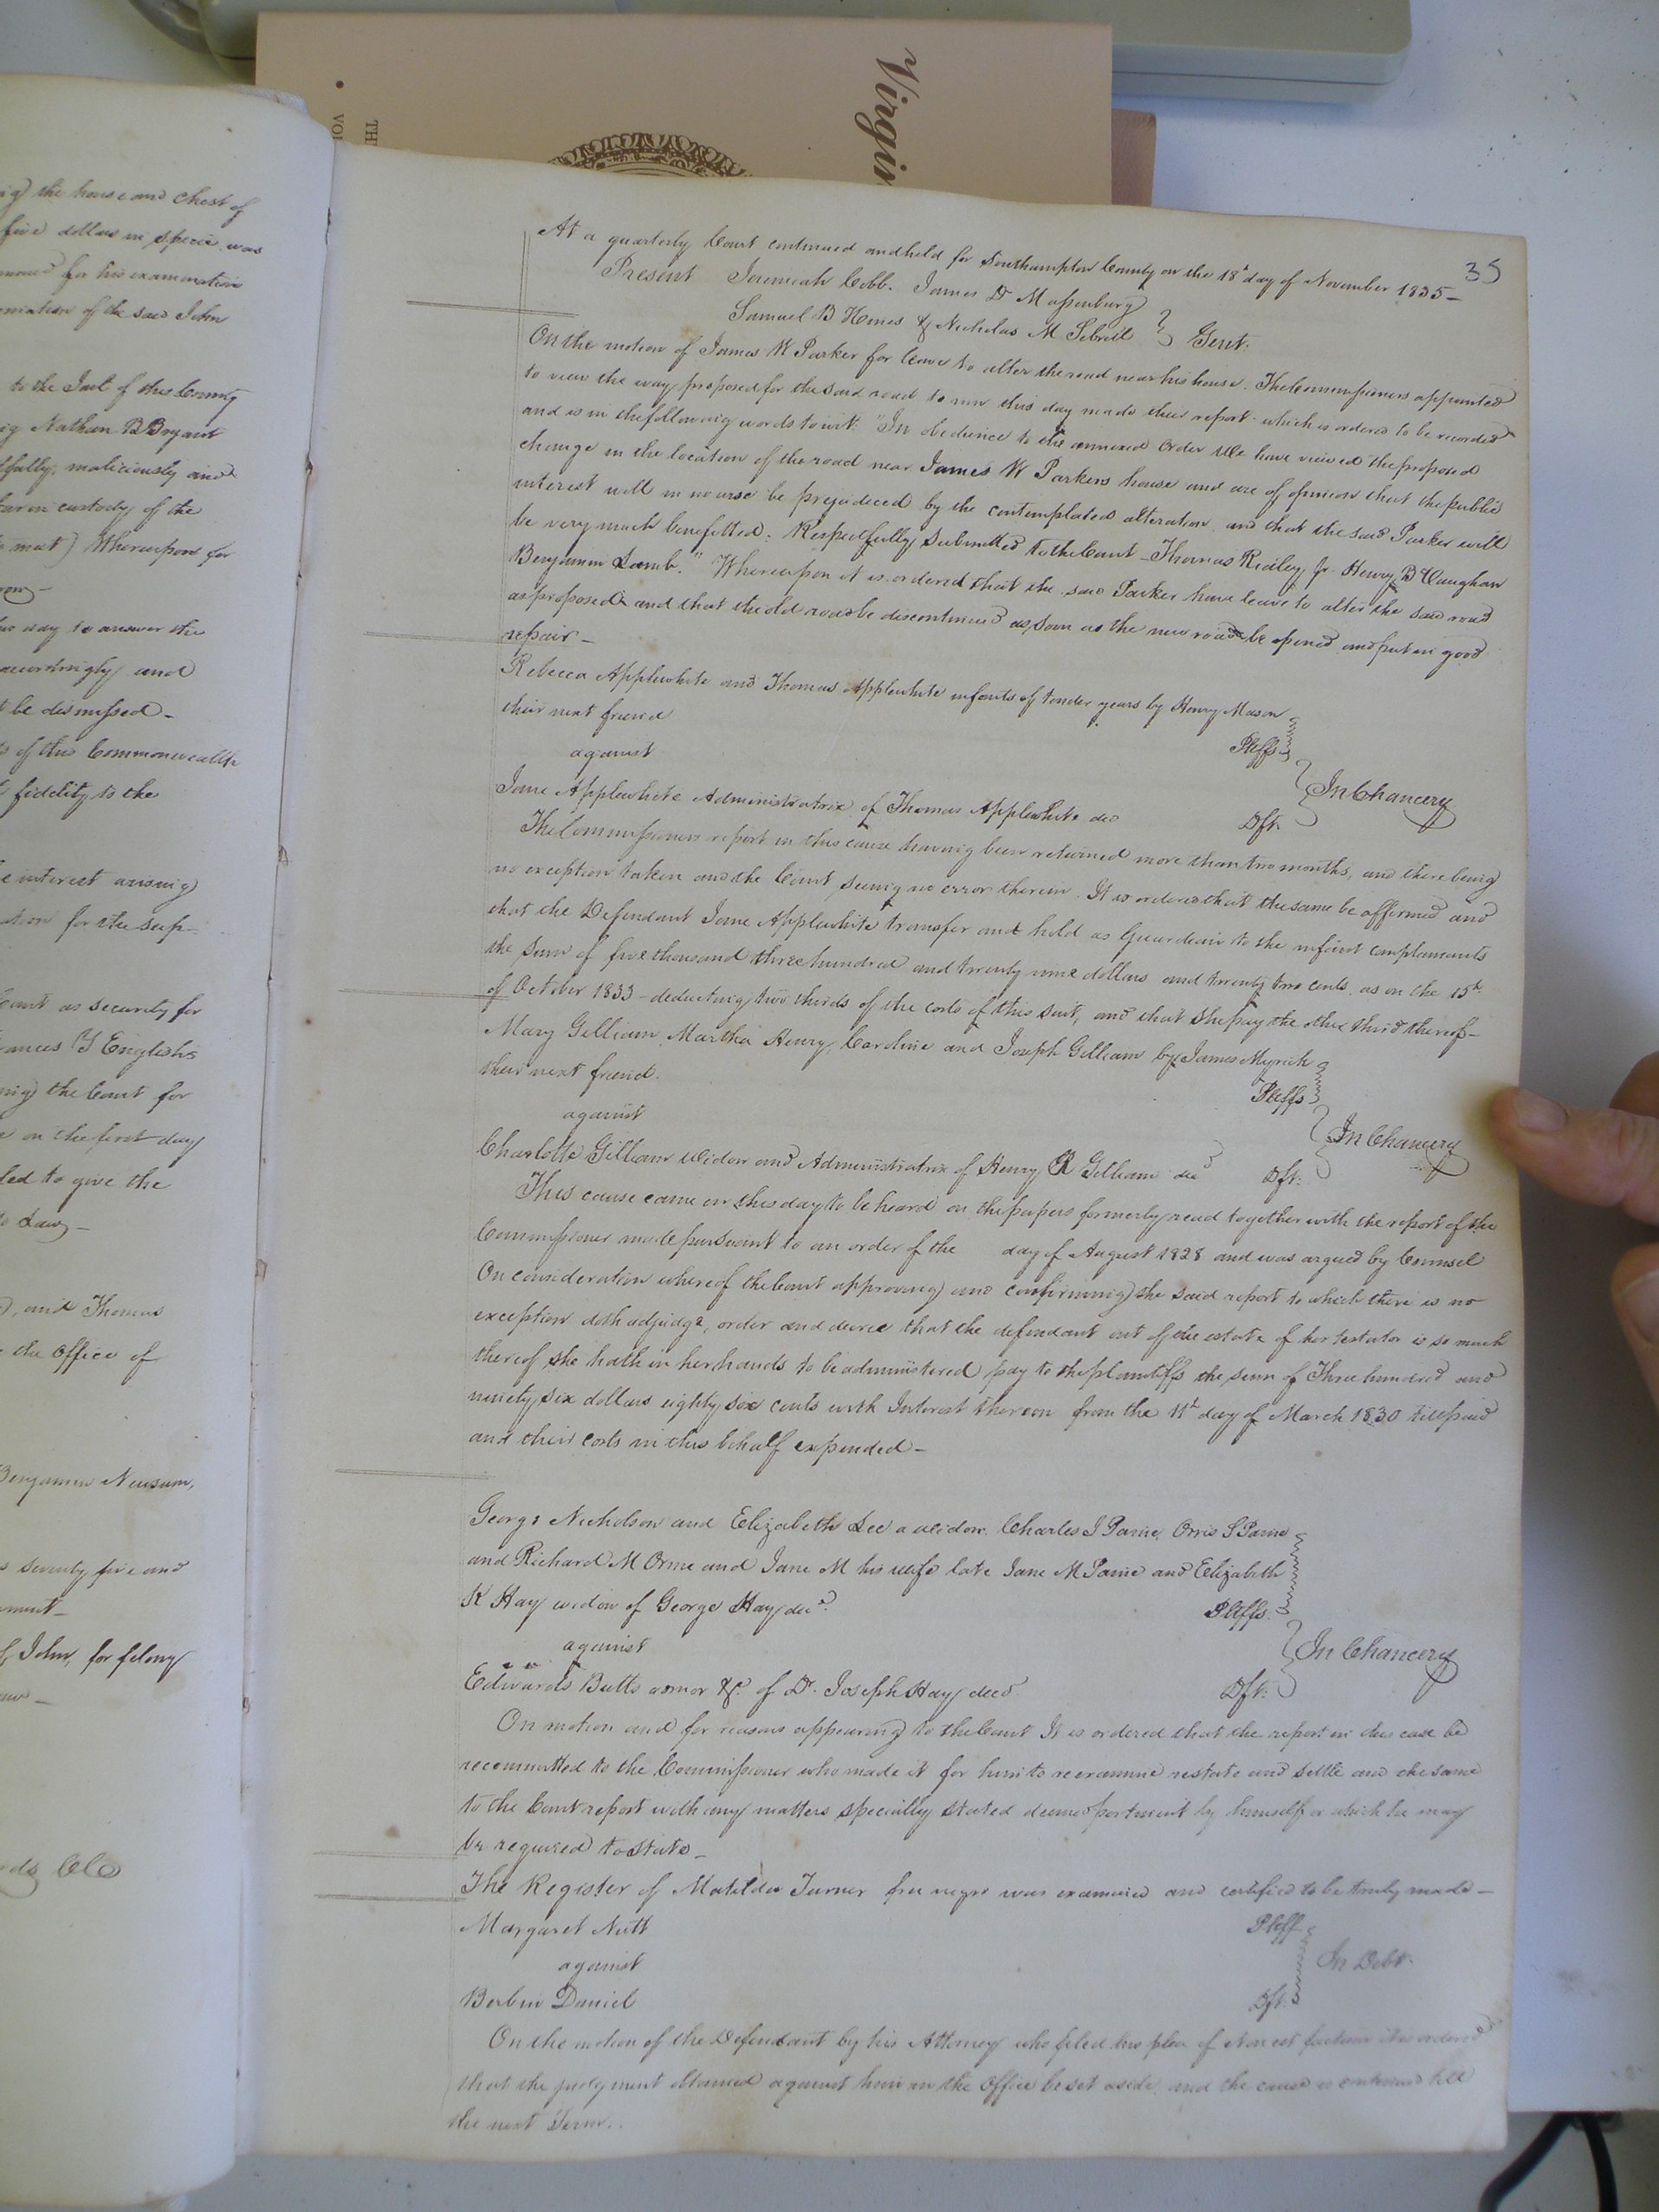 Virgin
TH
VOL
ing the house and chest of
five dollars in specie was
for his examination
of the said John
to the Jail of this County
Nathan B Bryant
maliciously and
in custody of the
Whereupon for
day to answer the
accordingly and
be dismissed -
of this Commonwealth
fidelity to the
interest arising
for the sup-
Court as security for
Frances Y English
the Court for
on the first day
to give the
Law -
and Thomas
the Office of
Benjamin Newsum,
seventy five and
John, for felony
35
At a quarterly Court continued and held for Southampton County on the 18th day of November 1835 -
Present Jeremiah Cobb. James D Massenburg
Samuel B Hines & Nicholas M Sebrell } Gent.
On the motion of James W Parker for leave to alter the road near his house. The Commissioners appointed
to view the way proposed for the said road to run this day made their report which is ordered to be recorded
and is in the following words to wit: "In obedience to the annexed Order We have viewed the proposed
change in the location of the road near James W Parkers house and are of opinion that the public
interest will in no wise be prejudiced by the contemplated alteration and that the said Parker will
be very much benefitted. Respectfully submitted to the Court - Thomas Ridley Jr Henry B Vaughan
Benjamin Lamb." Whereupon it is ordered that the said Parker have leave to alter the said road
as proposed and that the old road be discontinued as soon as the new road be opened and put in good
repair -
Rebecca Applewhite and Thomas Applewhite infants of tender years by Henry Mason
their next friend Pltffs
against } In Chancery
Jane Applewhite Administratrix of Thomas Applewhite dec Dft.
The Commissioners report in this cause having been returned more than two months, and there being
no exception taken and the Court seeing no error therein. It is ordered that the same be affirmed and
that the Defendant Jane Applewhite transfer and hold as Guardian to the infant complainants
the sum of five thousand three hundred and twenty nine dollars and twenty two cents. as on the 15th
of October 1833 - deducting two thirds of the costs of this suit, and that she pay the other third thereof -
Mary Gilliam, Martha Henry, Caroline and Joseph Gilliam by James Myrick
their next friend. Pltffs
against } In Chancery
Charlotte Gilliam Widow and Administratrix of Henry R Gilliam decd Dft.
This cause came on this day to be heard on the papers formerly read together with the report of the
Commissioner made pursuant to an order of the day of August 1828 and was argued by Counsel
On consideration whereof the Court approving and confirming the said report to which there is no
exception doth adjudge, order and decree that the defendant out of the estate of her testator is so much
thereof she hath in her hands to be administered pay to the plaintiffs the sum of Three hundred and
ninety six dollars eighty six cents with Interest thereon from the 11th day of March 1830 till paid
and their costs in this behalf expended -
George Nicholson and Elizabeth Lee a widow. Charles J Paine, Orris S Paine
and Richard M Orme and Jane M his wife late Jane M Paine and Elizabeth
K Hay widow of George Hay decd. Pltffs.
against } In Chancery
Edwards Butts admor &c. of Dr. Joseph Hay decd Dft.
On motion and for reasons appearing to the Court It is ordered that the report in this case be
recommitted to the Commissioner who made it for him to reexamine restate and settle and the same
to the Court report with any matters specially stated deemed pertinent by himself or which he may
be required to state -
The Register of Matilda Turner free negro was examined and certified to be truly made -
Margaret Nutt Pltff
against } In Debt.
Daniel Dft.
On the motion of the Defendant by his Attorney who filed his plea of Non est factum it is ordered
that the judgment obtained against him in the Office be set aside, and the cause is continued till
the next Term.